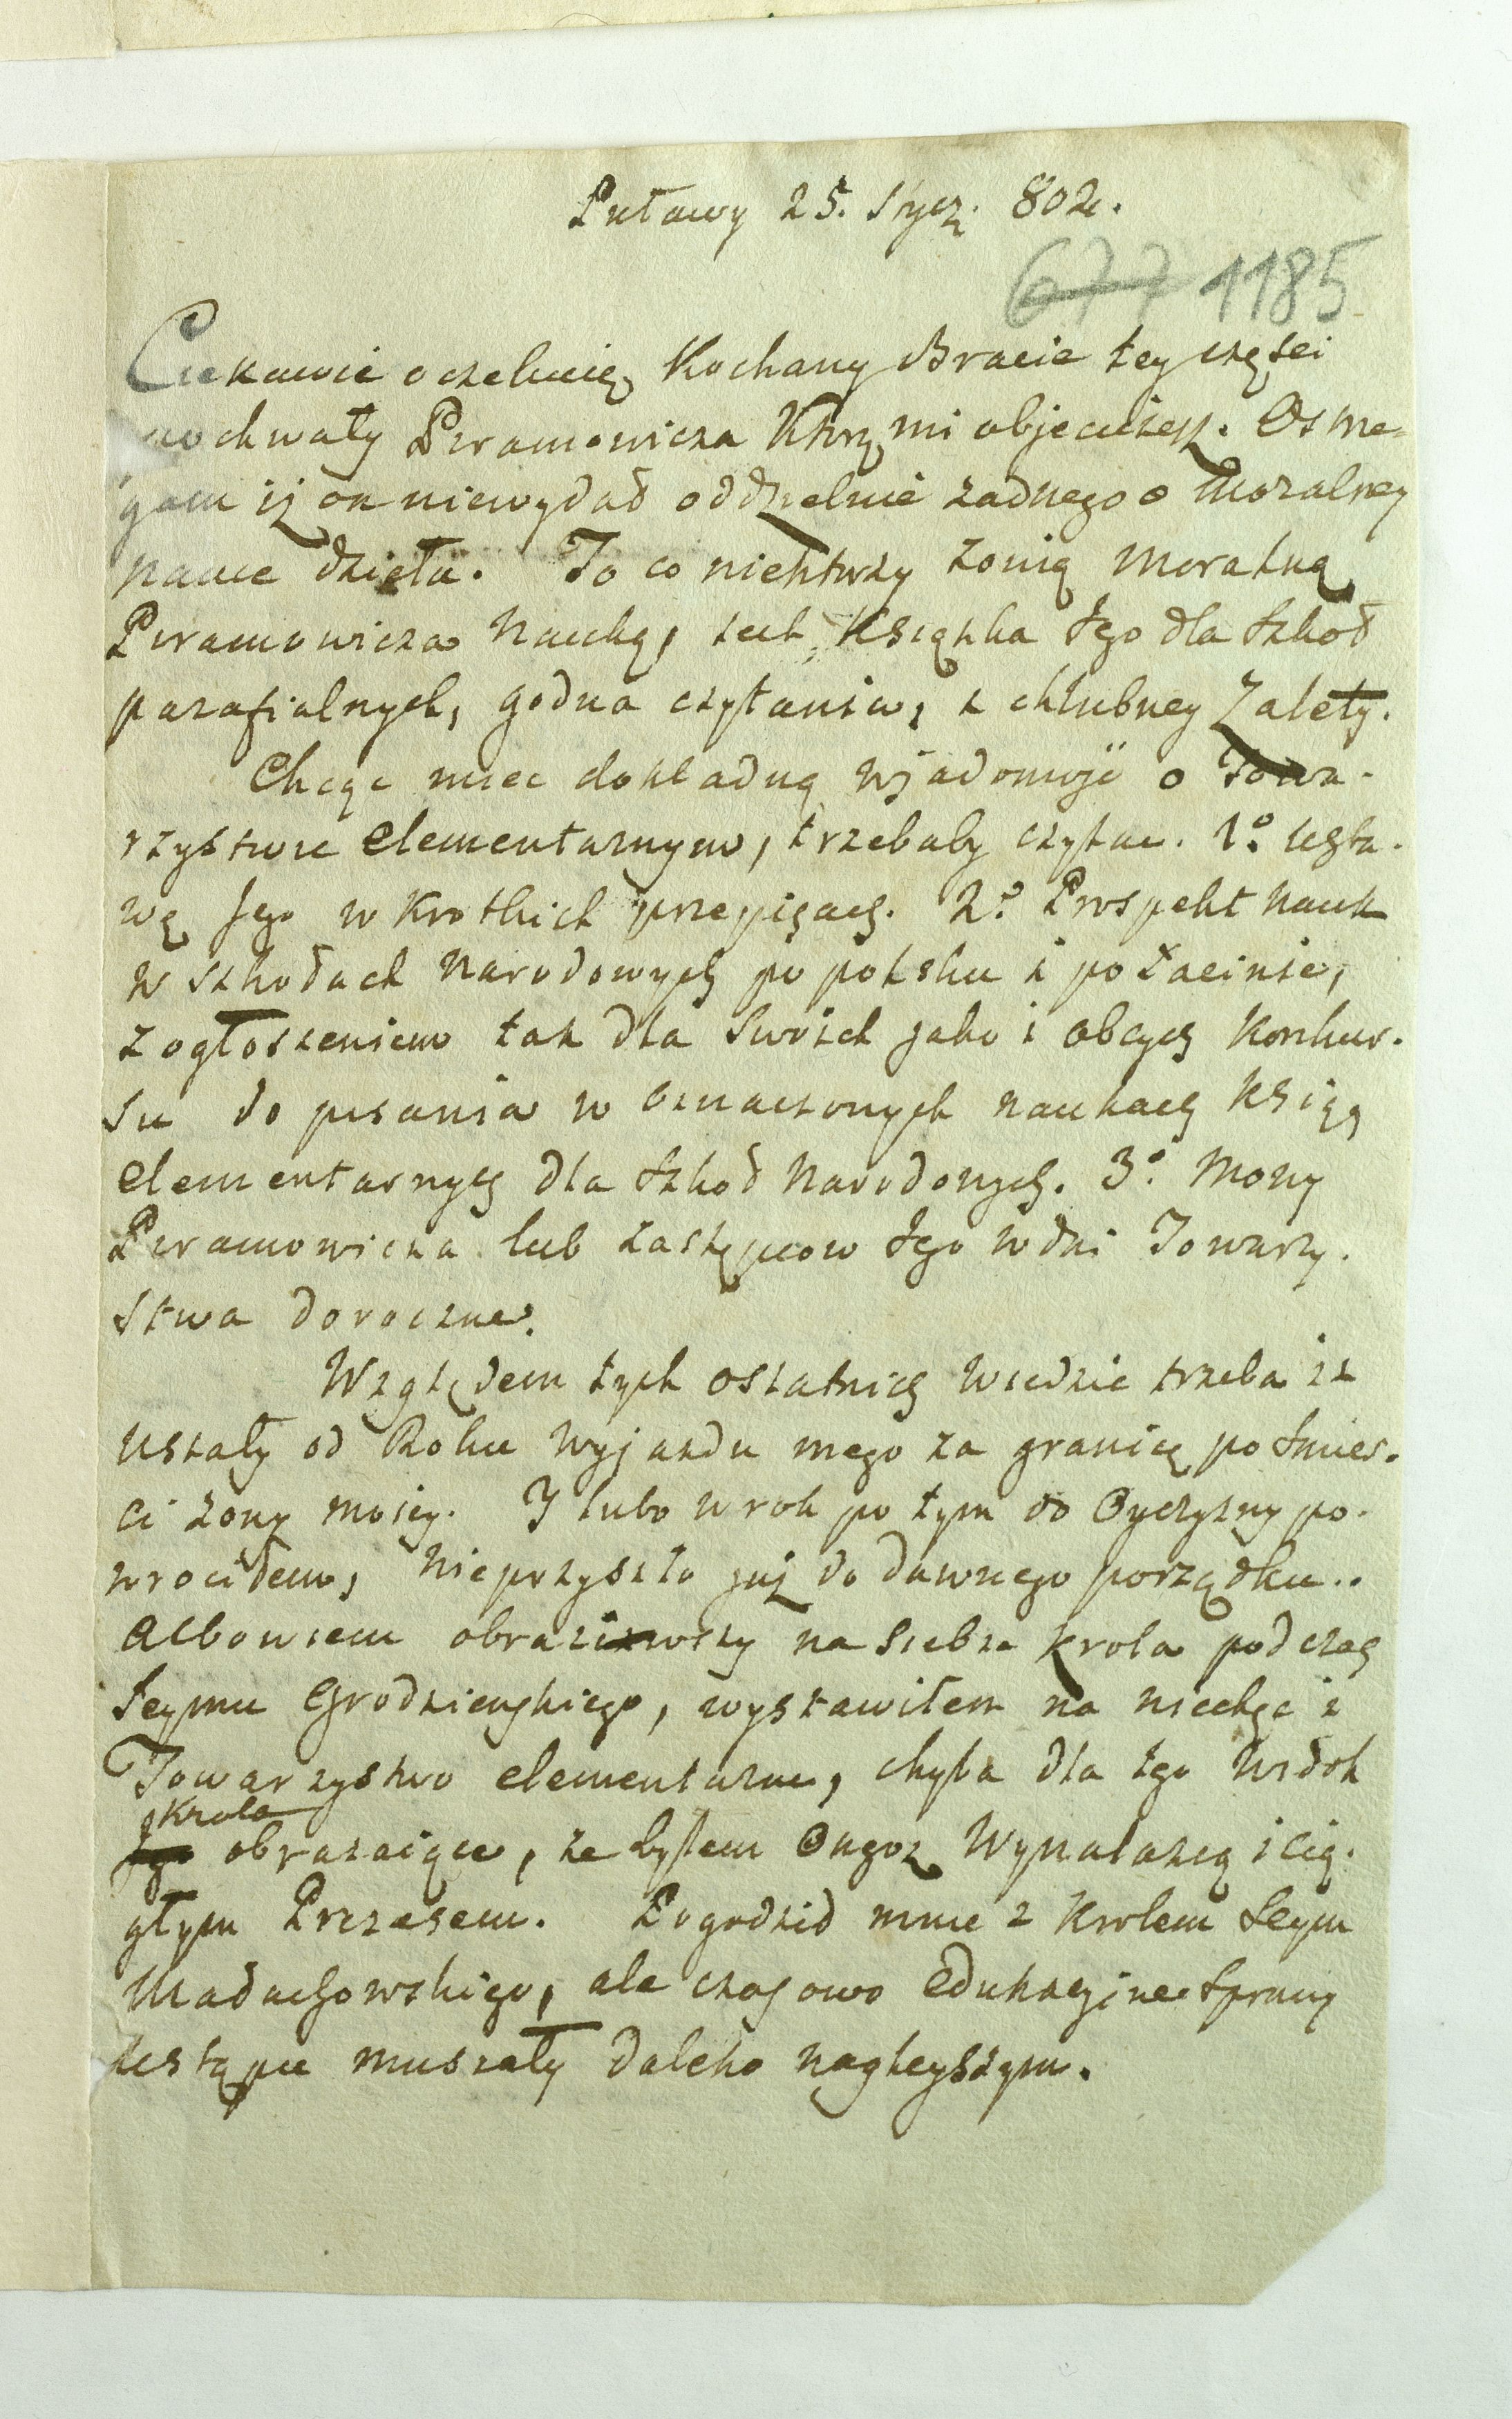 Puławy 25. Stycz. 802.
677 1185
Ciekawie oczekuię Kochany Bracie tey części
pochwały Piramowicza którą mi obiecuiesz. Ostrze-
gam iż on niewydał oddzielnie żadnego o Moralney
nauce dzieła. To co niektórzy zowią moralną
Piramowicza Nauką, iest Ksiązka Jego dla Szkoł
parafialnych, godna czytania, i chlubney Zalety.
Chcąc miec dokładną wjadomość o Towa-
rzystwie elementarnym, trzebaby czytac. 1º. Usta-
wę Jego w krotkich przepisach. 2º. Prospekt nauk
w szkołach narodowych po polsku i po łacinie,
z ogłoszeniem tak dla Swoich jako i obcych Konkur-
su do pisania w oznaczonych naukach Ksiąg
elementarnych dla Szkoł Narodowych. 3º. Mowy
Piramowicza lub zastępcow Jego w dni Towarzy-
stwa doroczne.
Względem tych ostatnich wiedzie trzeba iz
ustały od Roku wyjazdu mego za granicę po Smier-
ci zony moiey. I lubo w rok po tym do Oyczyzny po-
wrociłem, nieprzyszło już do dawnego porządku..
albowiem obraziwszy na siebie krola podczas
Seymu Grodzieńskiego, wystawiłem na niechęc i
Towarzystwo elementarne, chyba dla tego widok
Krola
Jego obrazaiące, ze byłem Onegoz Wynalazcą i cią-
głym Prezesem. Pogodził mnie z Krolem Seym
Małachowskiego, ale czasowo edukacyine Sprawy
ustąpic musiały daleko nagleyszym.